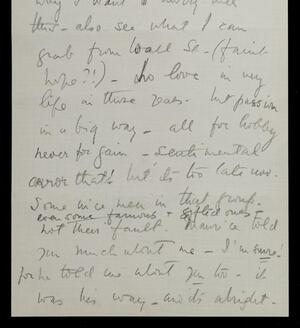 why I want to
this - also see what I can
grab from Wall St. - (faint
hope?!) - No love in my
life in those years. but passion
in a big way - all for hobby
never for gain - sentimental
error that! but its too late now.
Some nice men in that group.
even some famous & gifted ones -
not their fault. Maurice told
you much about me - I'm sure!
for he told me about you too - it
was his way - and its alright.